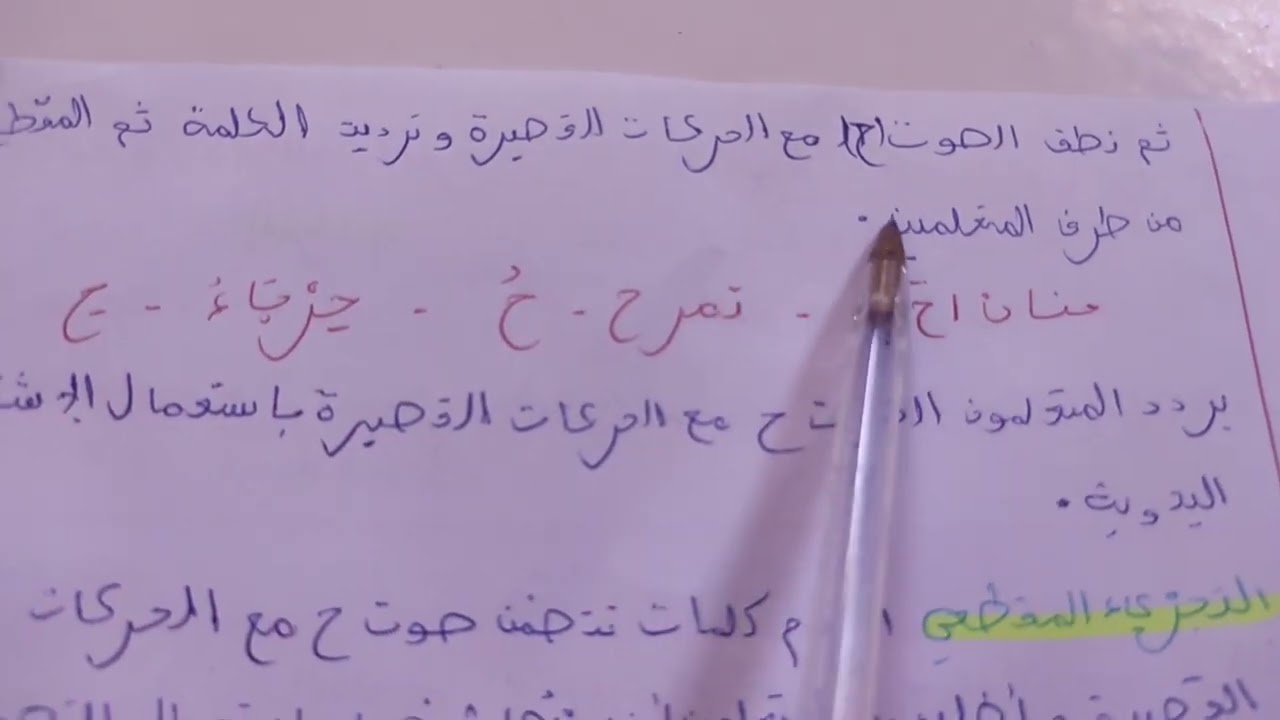 ثم نطق الصوت (ح) مع الحركات القصيرة وترديد الكلمة ثم المقط
من طرف المتعلمين .
حنان احَ - تمرح - حُ - حِرْبَاءُ - ح
يردد المتعلمون ح مع الحركات القصيرة باستعمال الإشا
اليدوية .
التجزيء المقطعي كلمات تتضمن صوت ح مع الحركات
القصيرة